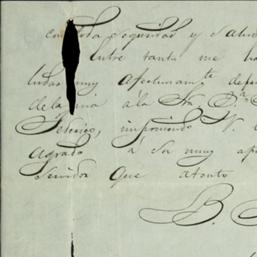 con toda seguridad y salud
Entre tanto me ha
muy afectuosam.te
de la mia a la Sra. D.a
Federico, imponiendo V.
agrado a su muy
Servidor que atento
B. S